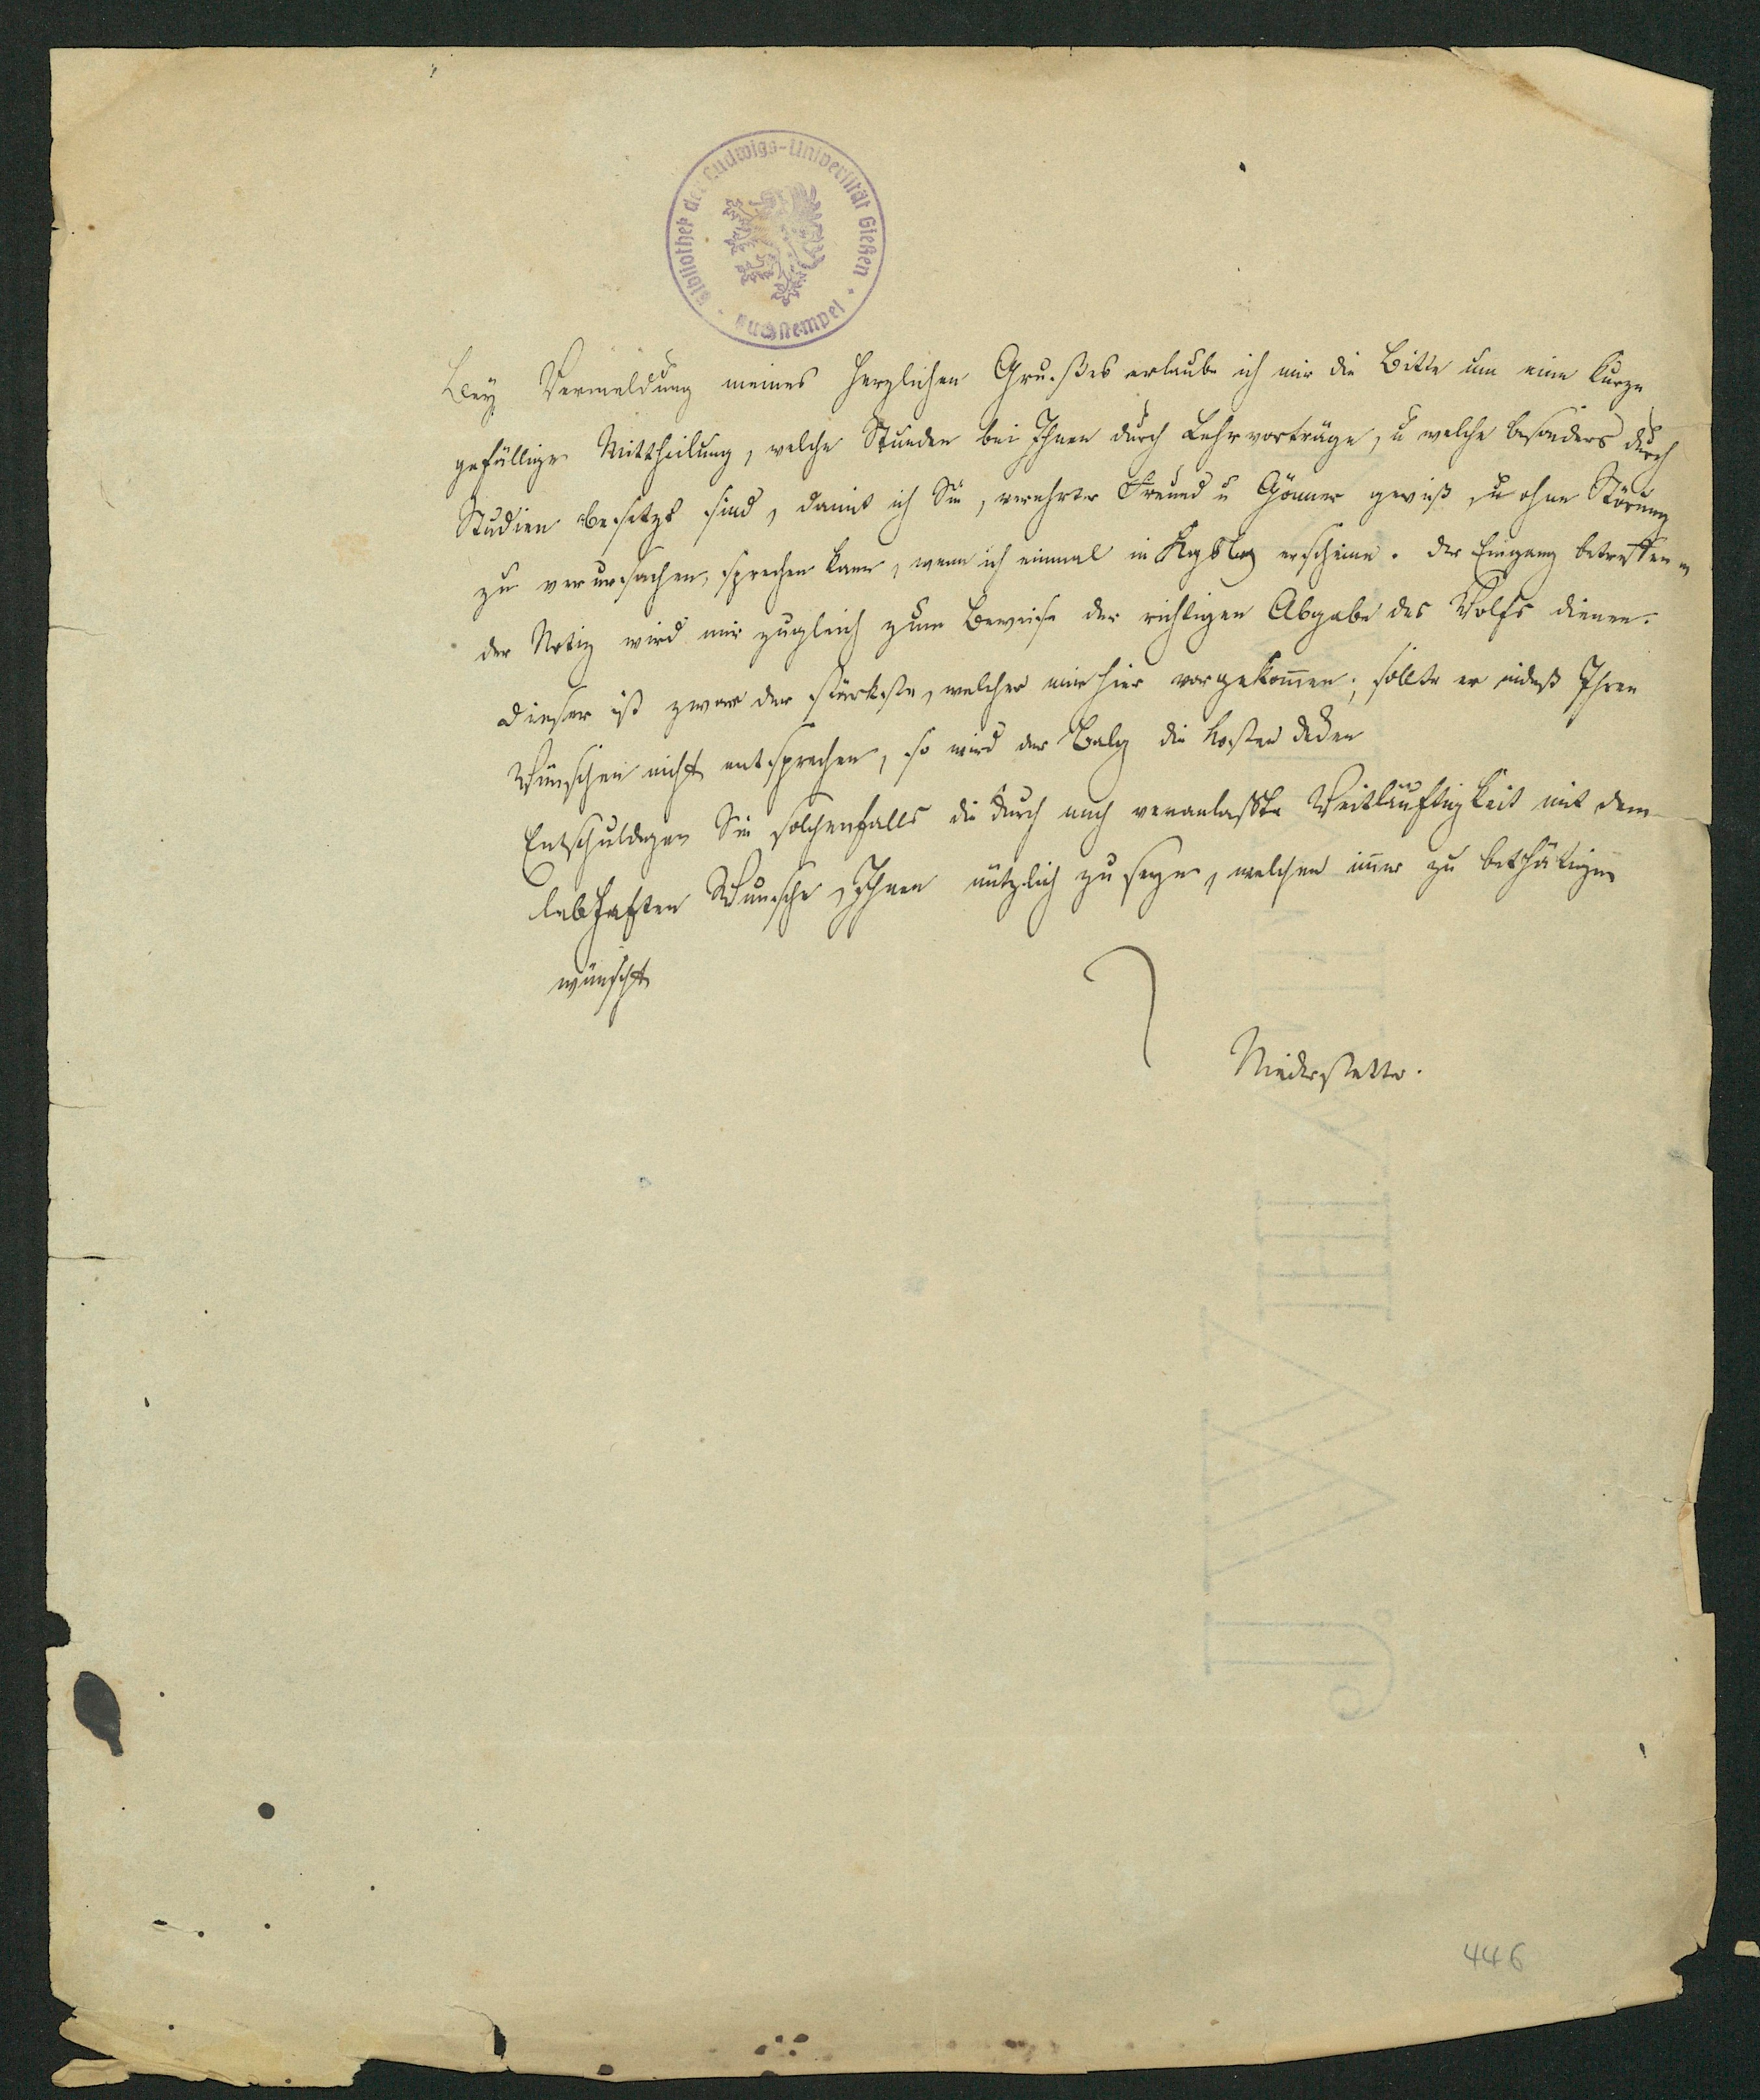 Bibliothek der Ludwigs-Universität Gießen
Buchstempel
Bey Vermeldung meines herzlichen Grußes erlaube ich mir die Bitte um eine kurze
gefällige Mittheilung, welche Stunden bei Ihnen durch Lehrvorträge, u welche besonders durch
Studien besetzt sind, damit ich Sie, verehrter Freund u Gönner gewiß, u ohne Störung
zu verursachen, sprechen kann, wenn ich einmal in Kgsbg erscheine. Der Eingang betreffen
der Notiz wird mir zugleich zum Beweise der richtigen Abgabe des Wolfs dienen.
Dieser ist zwar der stärkste, welcher mir hier vorgekom̄en; sollte er indeß Ihren
Wünschen nicht entsprechen, so wird der Balg die Kosten decken
Entschuldigen Sie solchenfalls die durch mich veranlaßte Weitläuftigkeit mit dem
lebhaften Wunsche, Ihnen nützlich zu seyn, welchen im̄er zu bethätigen
wünscht
Niederstetter.
J. WHATMAN
446